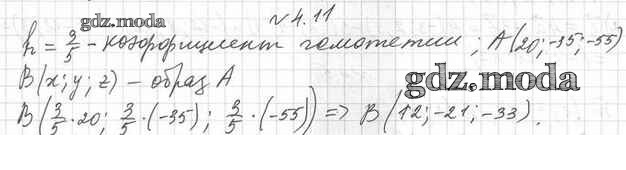 gdz.moda
№ 4.11
k = 3/5 - коэффициент гомотетии; A(20; -35; -55)
B(x; y; z) - образ A
gdz.moda
B(3/5 · 20; 3/5 · (-35); 3/5 · (-55)) => B(12; -21; -33).